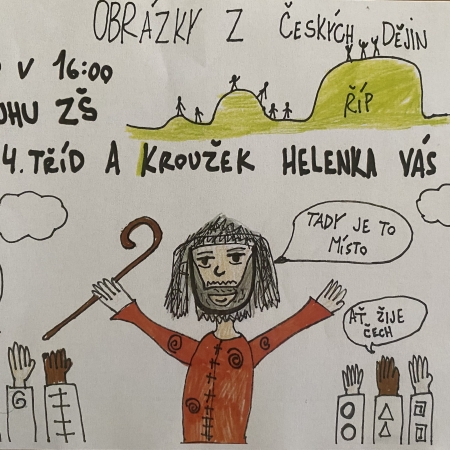 OBRÁZKY Z ČESKÝCH DĚJIN
V 16:00
ŘÍP
ZŠ
4. TŘÍD A KROUŽEK HELENKA VÁS
TADY JE TO
MÍSTO
AŤ ŽIJE
ČECH